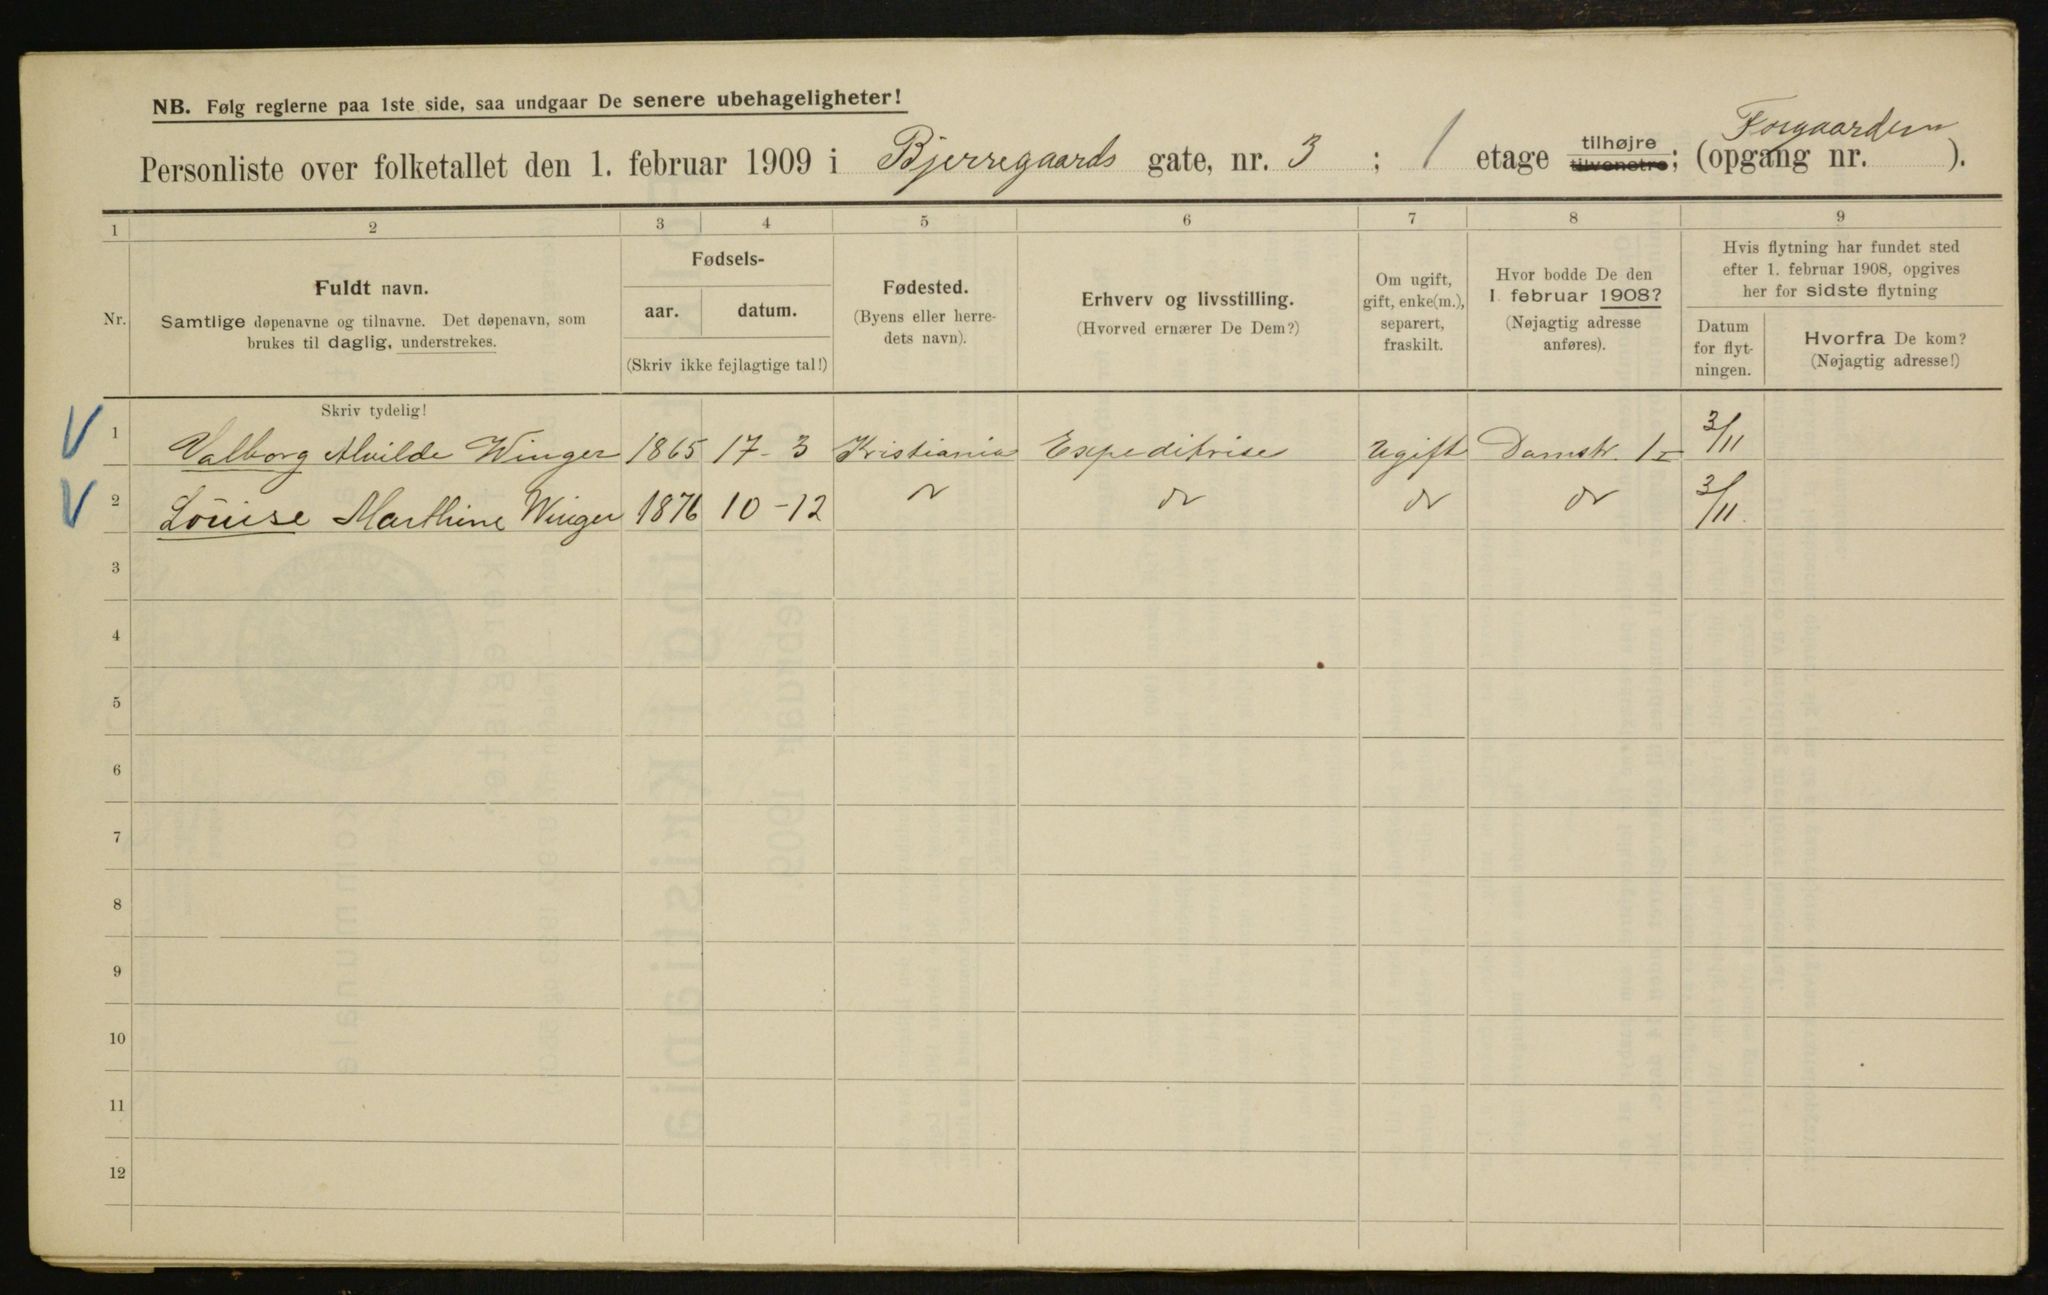 NB. Følg reglerne paa 1ste side, saa undgaar De senere ubehageligheter!
Forgaarden
Personliste over folketallet den 1. februar 1909 i Bjerregaards gate, nr. 3 ; 1 etage tilhøjre tilvenstre; (opgang nr. ).
1 2 3 4 5 6 7 8 9
Nr.
Fuldt navn.
Samtlige døpenavne og tilnavne. Det døpenavn, som
brukes til daglig, understrekes.
Fødsels-
aar. datum.
(Skriv ikke fejlagtige tal!)
Fødested.
(Byens eller herre-
dets navn).
Erhverv og livsstilling.
(Hvorved ernærer De Dem?)
Om ugift,
gift, enke(m.),
separert,
fraskilt.
Hvor bodde De den
1. februar 1908?
(Nøjagtig adresse
anføres).
Hvis flytning har fundet sted
efter 1. februar 1908, opgives
her for sidste flytning
Datum
for flyt-
ningen.
Hvorfra De kom?
(Nøjagtig adresse!)
Skriv tydelig!
1 Valborg Alvilde Winger 1865 17-3 Kristiania Expeditrise Ugift Damstr. 1 3/11
2 Louise Marthine Winger 1876 10-12 do do do 3/11
3
4
5
6
7
8
9
10
11
12